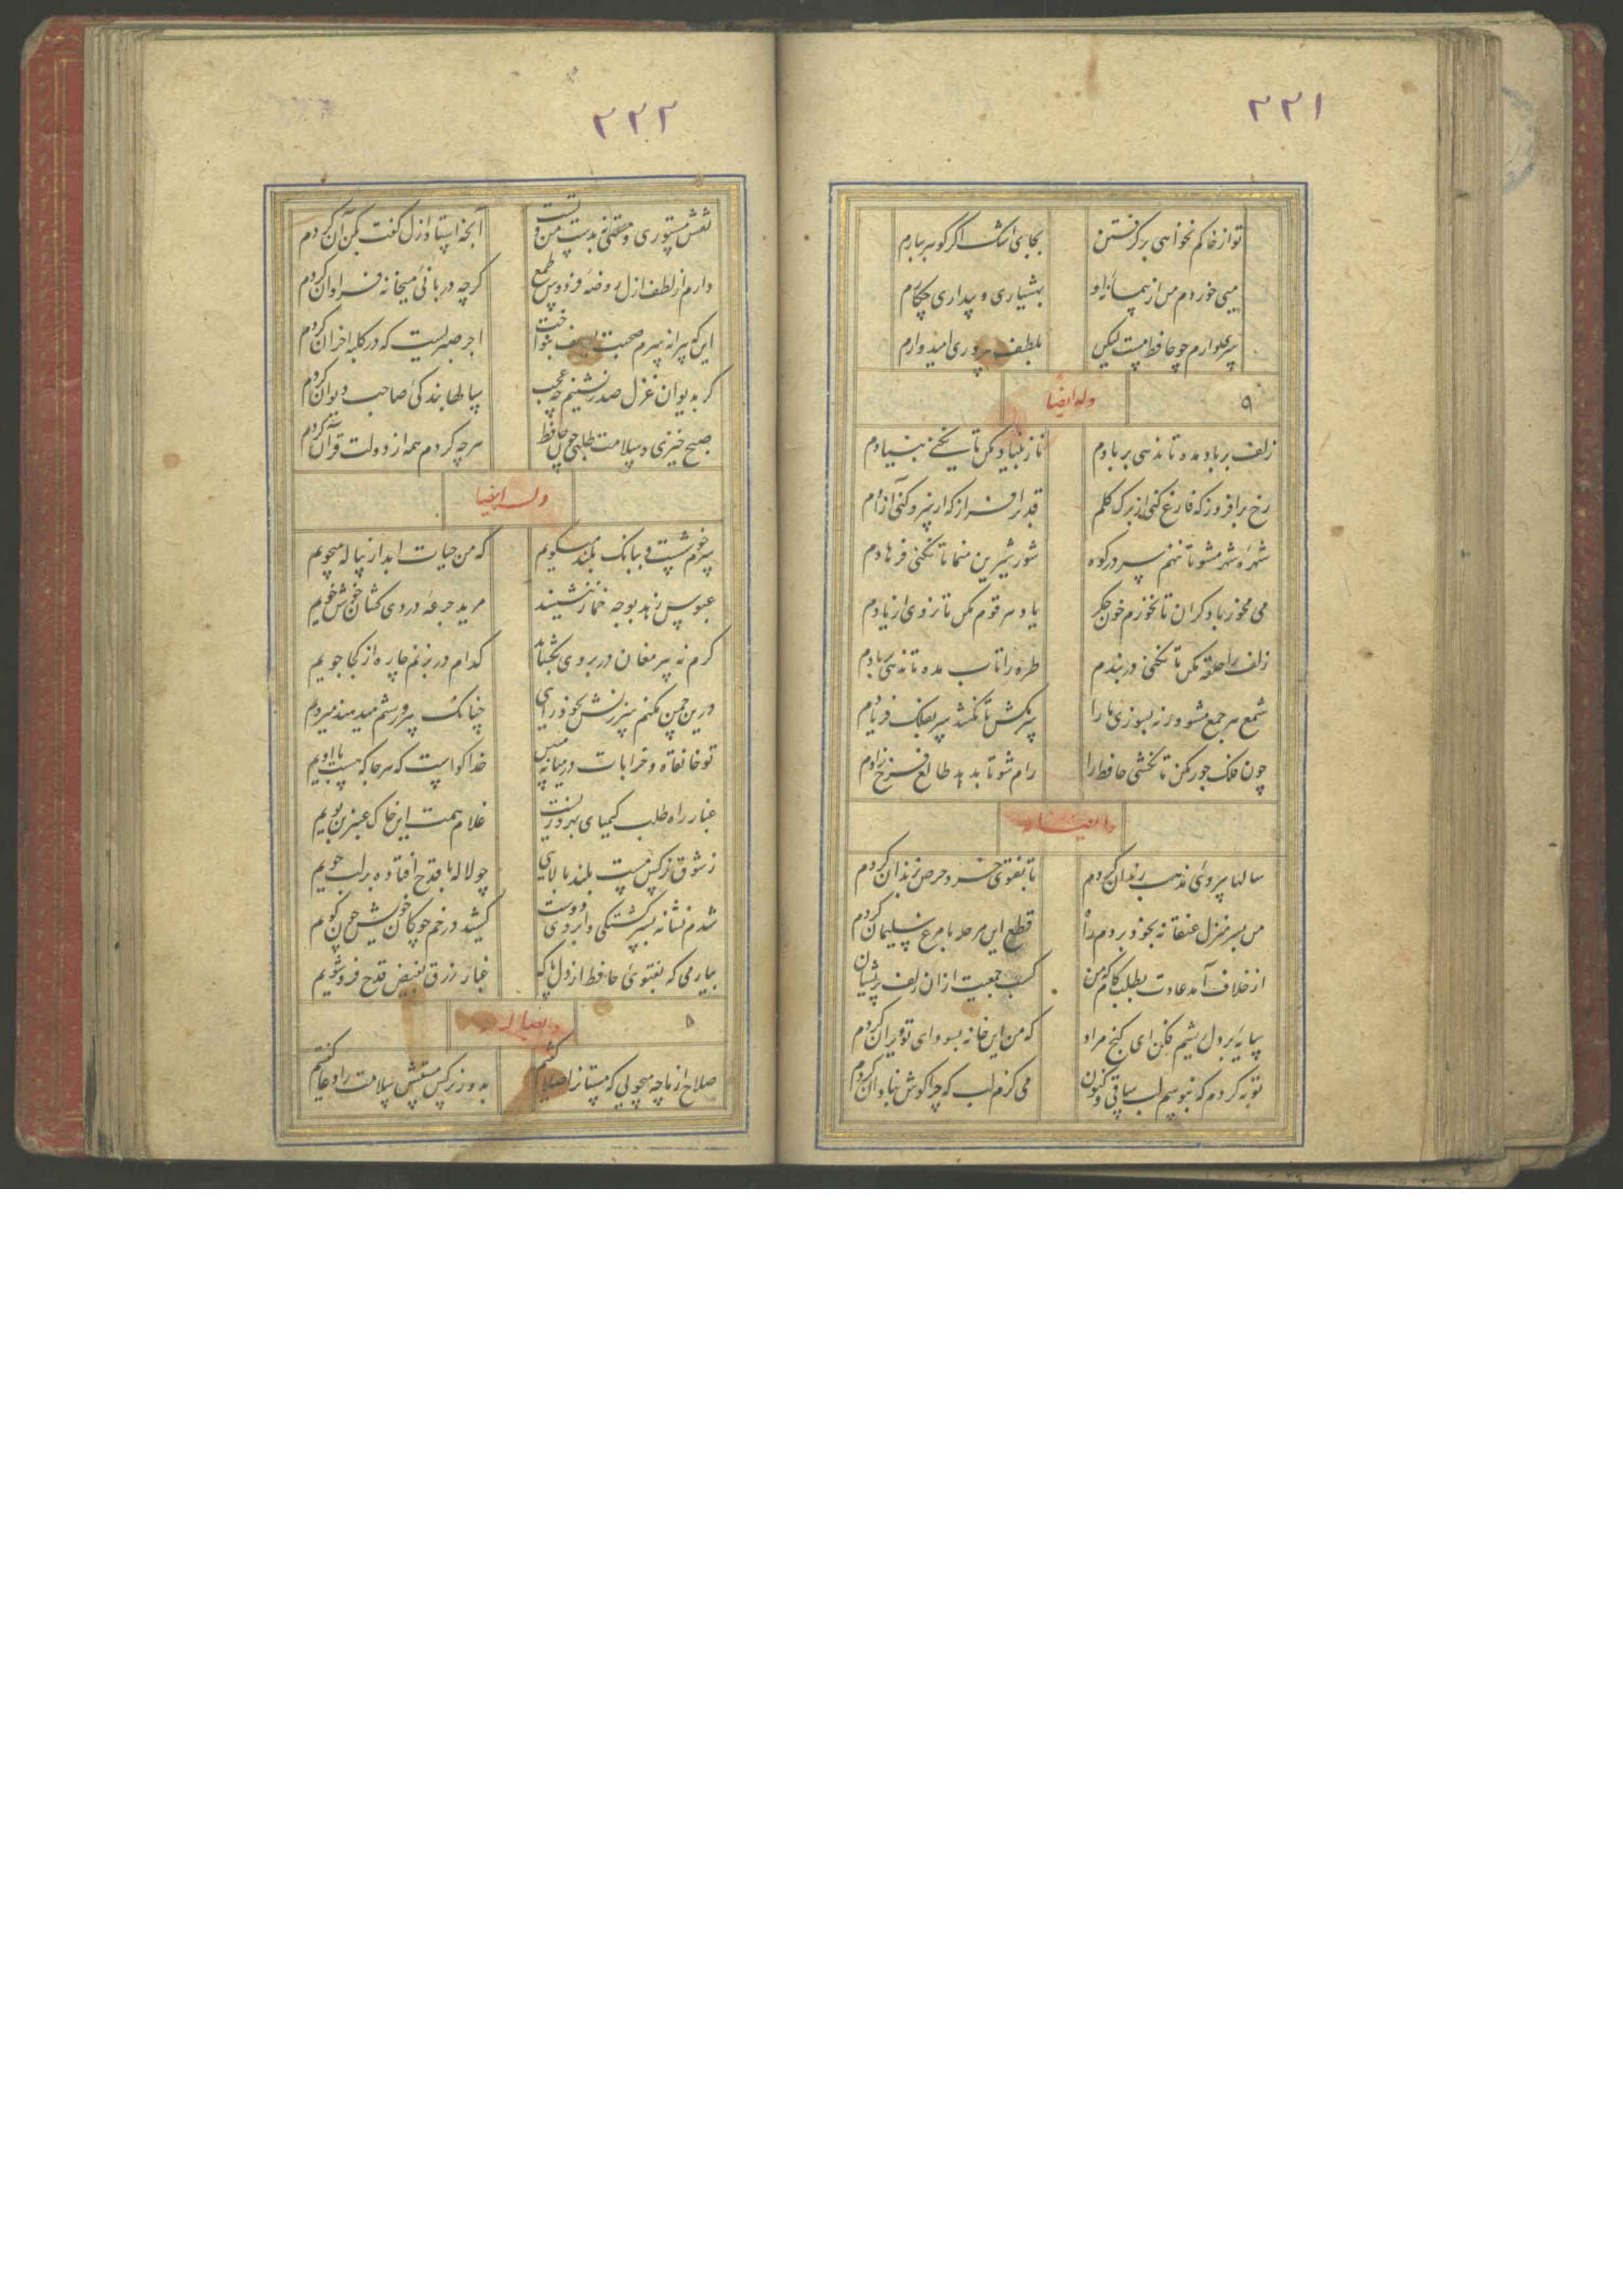 ۲۳۱
تو از خاکم نخواهی برگرفتن بجای اشک اگر گوهر ببارم
میی خوردم من از پیمانه او بهشیاری و بیداری چکارم
سری دارم چو حافظ مست لیکن بلطف سروری امیدوارم
وله ایضا
۹
زلف بر باد مده تا ندهی بر بادم ناز بنیاد مکن تا نکنی بنیادم
رخ برافروز که فارغ کنی از برک کلم قد برافراز که از سرو کنی آزادم
شهره شهر مشو تا ننهم سر در کوه شور شیرین منما تا نکنی فرهادم
می مخور با دکران تا نخورم خون جکر یاد هر قوم مکن تا نروی از یادم
زلف را حلقه مکن تا نکنی در بندم طره را تاب مده تا ندهی بادم
شمع هر جمع مشو ورنه بسوزی ما را سر مکش تا نکشد سر بفلک فریادم
چون فلک جور مکن تا نکشی حافظ را رام شو تا بدهد طالع فرخ دادم
وله ایضا
سالها پیروی مذهب رندان کردم تا بفتوی خرد حرص بزندان کردم
من بسر منزل عنقا نه بخود بردم راه قطع این مرحله با مرغ سلیمان کردم
از خلاف آمد عادت بطلب کام که من کسب جمعیت از آن زلف پریشان
سایه بر دل ریشم فکن ای کنج مراد که من این خانه بسودای تو ویران کردم
توبه کردم که نبوسم لب ساقی و کنون می کزم لب که چرا کوش بنادان کردم
۲۳۲
نقش مستوری و مستی نه بدست من و تست آنچه استاد ازل کفت بکن آن کردم
دارم از لطف ازل روضه فردوس طمع کرچه دربانی میخانه فراوان کردم
این که پیرانه سرم صحبت یوسف بنواخت اجر صبریست که در کلبه احزان کردم
کر بدیوان غزل صدر نشینم چه عجب سالها بندکی صاحب دیوان کردم
صبح خیزی و سلامت طلبی چون حافظ هرچه کردم همه از دولت قرآن کردم
وله ایضا
سرم خوشست و ببانک بلند میکویم که من حیات ابد از پیاله میجویم
عبوس زهد بوجه خمار ننشیند مرید جرعه دردی کشان خوش خویم
کرم نه پیر مغان در بروی بکشاید کدام در بزنم چاره از کجا جویم
درین چمن مکنم سرزنش بخودرایی چنانک پرورشم میدهند میرویم
تو خانقاه و خرابات در میانه مبین خدا کواست که هرجا که هست با اویم
غبار راه طلب کیمیای بهروزیست غلام همت این خاک عنبرین بویم
ز شوق نرکس مست بلند بالایی چو لاله با قدح افتاده بر لب جویم
شدم نشانه بسرکشتکی و ابروی دوست کشید در خم چوکان خویش چون کویم
بیار می که بفتوی حافظ از دل پاک غبار زرق بفیض قدح فروشویم
وله ایضا
۵
صلاح از ما چه میجویی که مستانرا صلا کفتیم بدور نرکس مستش سلامت را دعا کفتیم